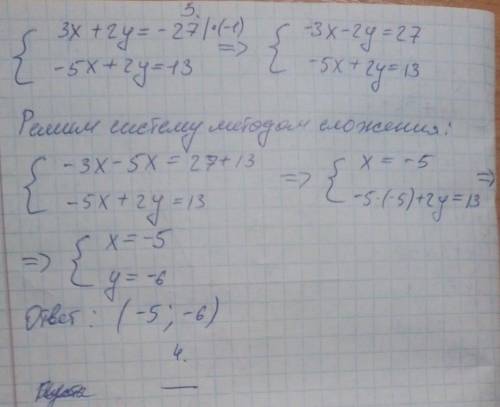 5.
{ 3x + 2y = -27 | ·(-1) => { -3x - 2y = 27
{ -5x + 2y = 13 { -5x + 2y = 13
Решим систему методом сложения:
{ -3x - 5x = 27 + 13 => { x = -5
{ -5x + 2y = 13 { -5·(-5) + 2y = 13 =>
=> { x = -5
{ y = -6
Ответ: (-5; -6)
4.
—